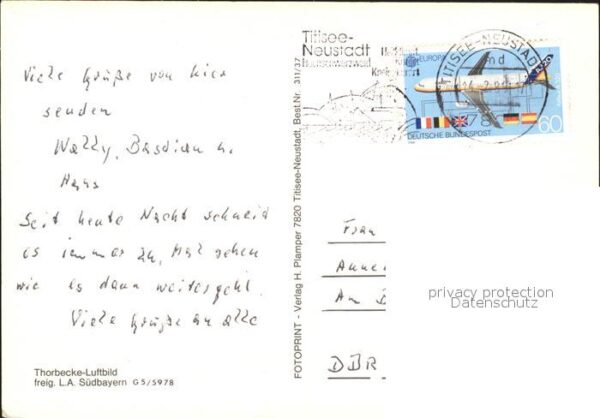 Viele Grüße von hier
senden
Wally, Bastian u.
Hans
Seit heute Nacht schneid
es immer zu, Mal sehen
wie es dann weitergeht.
Viele Grüße an alle
Thorbecke-Luftbild
freig. L.A. Südbayern G 5/5978
FOTOPRINT - Verlag H. Plamper 7820 Titisee-Neustadt, Best.Nr. 311/37
Titisee-
Neustadt
Hochschwarzwald
TITISEE-NEUSTADT
EUROPA
A320
DEUTSCHE BUNDESPOST
60
Frau
Anne
An
DDR
privacy protection
Datenschutz